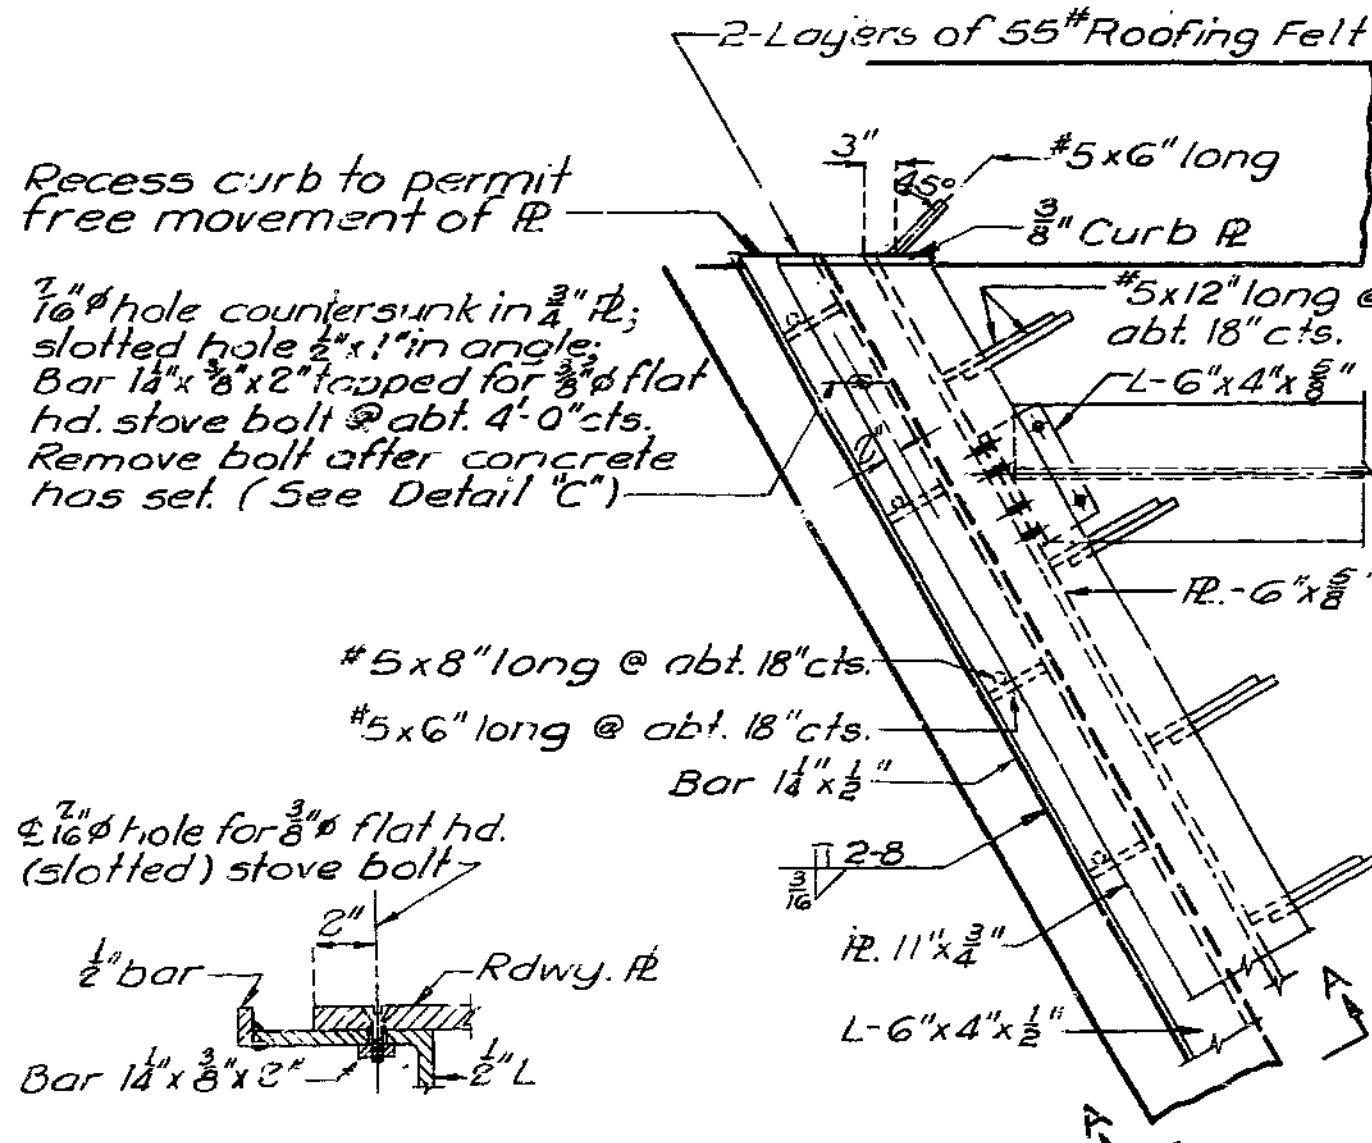 2-Layers of 55# Roofing Felt
3"
45°
#5x6" long
Recess curb to permit
free movement of ℙL
3/8" Curb ℙL
7/16"ø hole countersunk in 3/4" ℙL;
slotted hole 1/2"x1" in angle;
Bar 1 1/4"x 3/8"x2" tapped for 3/8"ø flat
hd. stove bolt @ abt. 4'-0" cts.
Remove bolt after concrete
has set. (See Detail "C")
#5x12" long @
abt. 18" cts.
L-6"x4"x 5/8"
ℙL.-6"x 5/8"
#5x8" long @ abt. 18" cts.
#5x6" long @ abt. 18" cts.
Bar 1 1/4"x 1/2"
2-8
3/16
ℙL. 11"x 3/4"
L-6"x4"x 1/2"
A
A
℄ 7/16"ø hole for 3/8"ø flat hd.
(slotted) stove bolt
2"
1/2" bar
Rdwy. ℙL
Bar 1 1/4"x 3/8"x2"
1/2" L